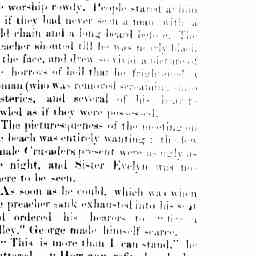 worship rowdy. People stared at him
if they had never seen a man with a
chain and a long beard before. The
shouted till he was nearly black
the face, and drew so vivid a picture of
horrors of hell that he frightened
(who was removed screaming into
and several of his
as if they were possessed.
The picturesqueness of the meeting on
beach was entirely wanting: the
Crusaders present were as ugly as
night, and Sister Evelyn was not
to be seen.
As soon as he could, which was when
preacher sank exhausted into his seat
ordered his hearers to
George made himself scarce.
"This is more than I can stand," he